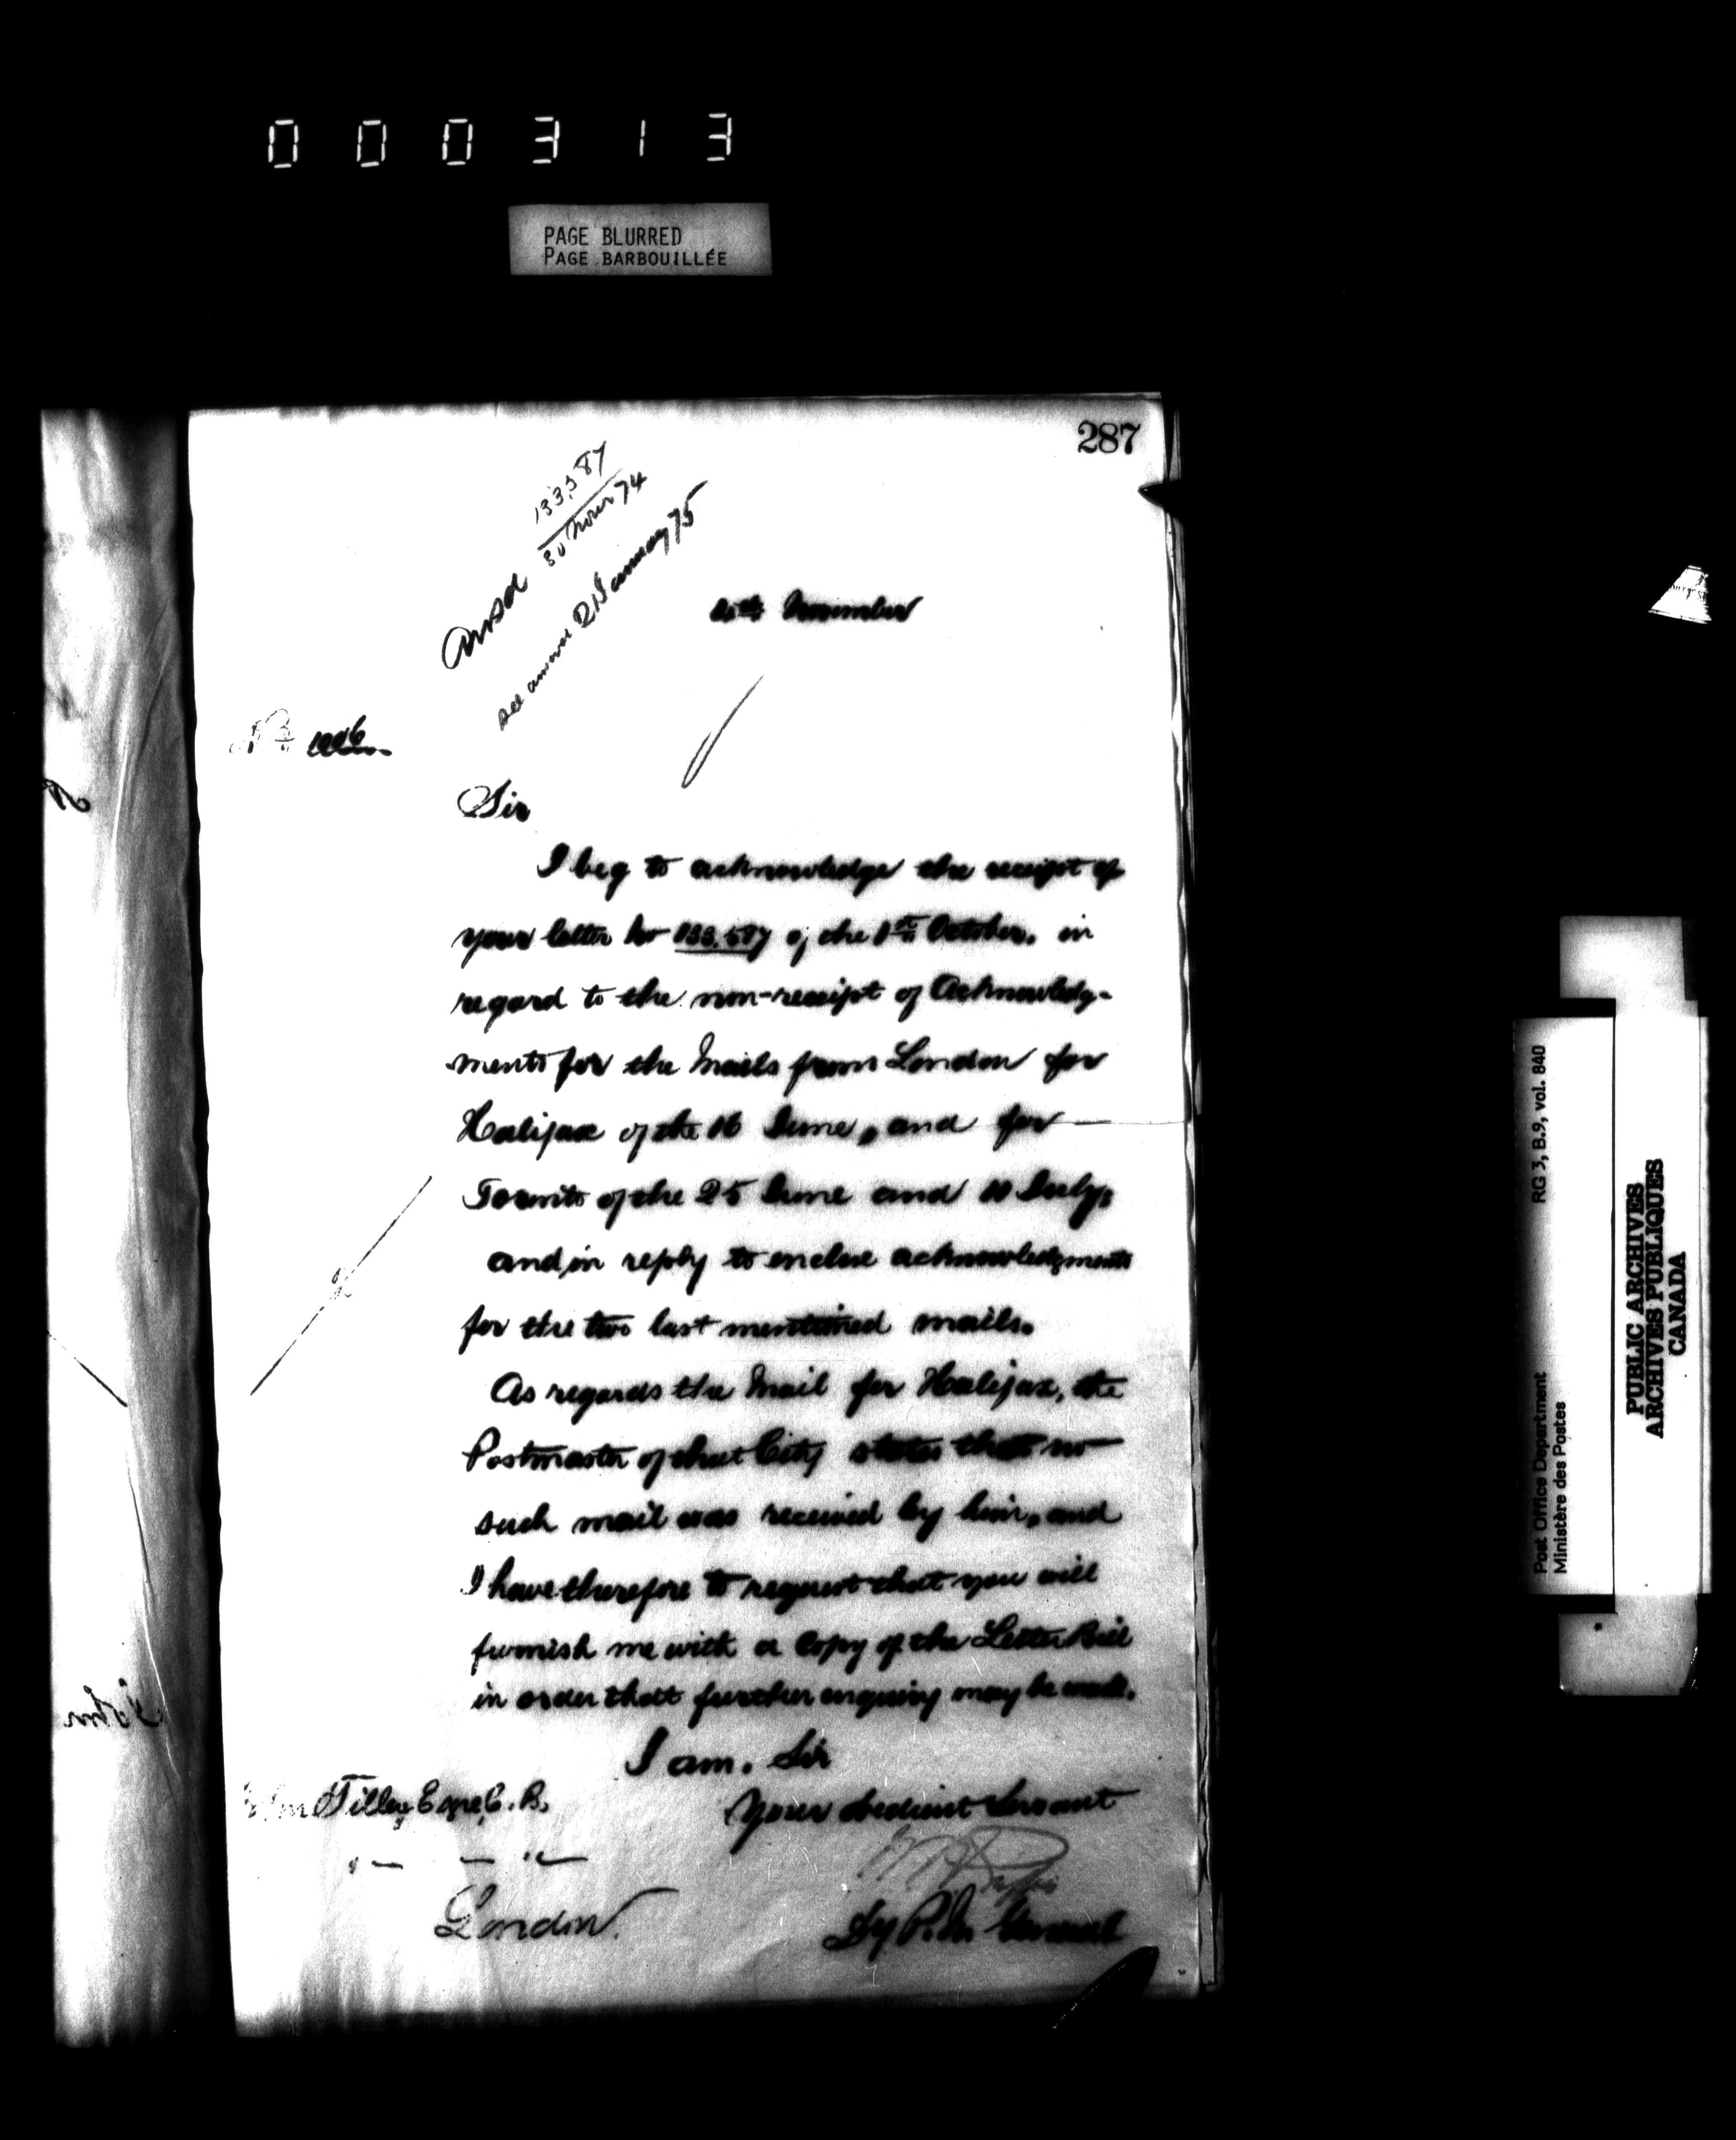 000313
PAGE BLURRED
PAGE BARBOUILLÉE
287
133,587
74
Ansd
see answer 21 January 75
November
Sir
I beg to acknowledge the receipt of
your letter No 133,587 of the October, in
regard to the non-receipt of Acknowledg-
ments for the Mails from London for
Halifax of the 16 June, and for
Toronto of the 25 June and 10 July,
and in reply to enclose acknowledgments
for the two last mentioned mails.
As regards the Mail for Halifax, the
Postmaster of that City states that no
such mail was received by him, and
I have therefore to request that you will
furnish me with a Copy of the Letter Bill
in order that further enquiry may be made.
I am, Sir
Your obedient Servant
Tilley Esqre C.B.
London.
Dy P. M. General
RG 3, B.9, vol. 840
Post Office Department
Ministère des Postes
PUBLIC ARCHIVES
ARCHIVES PUBLIQUES
CANADA